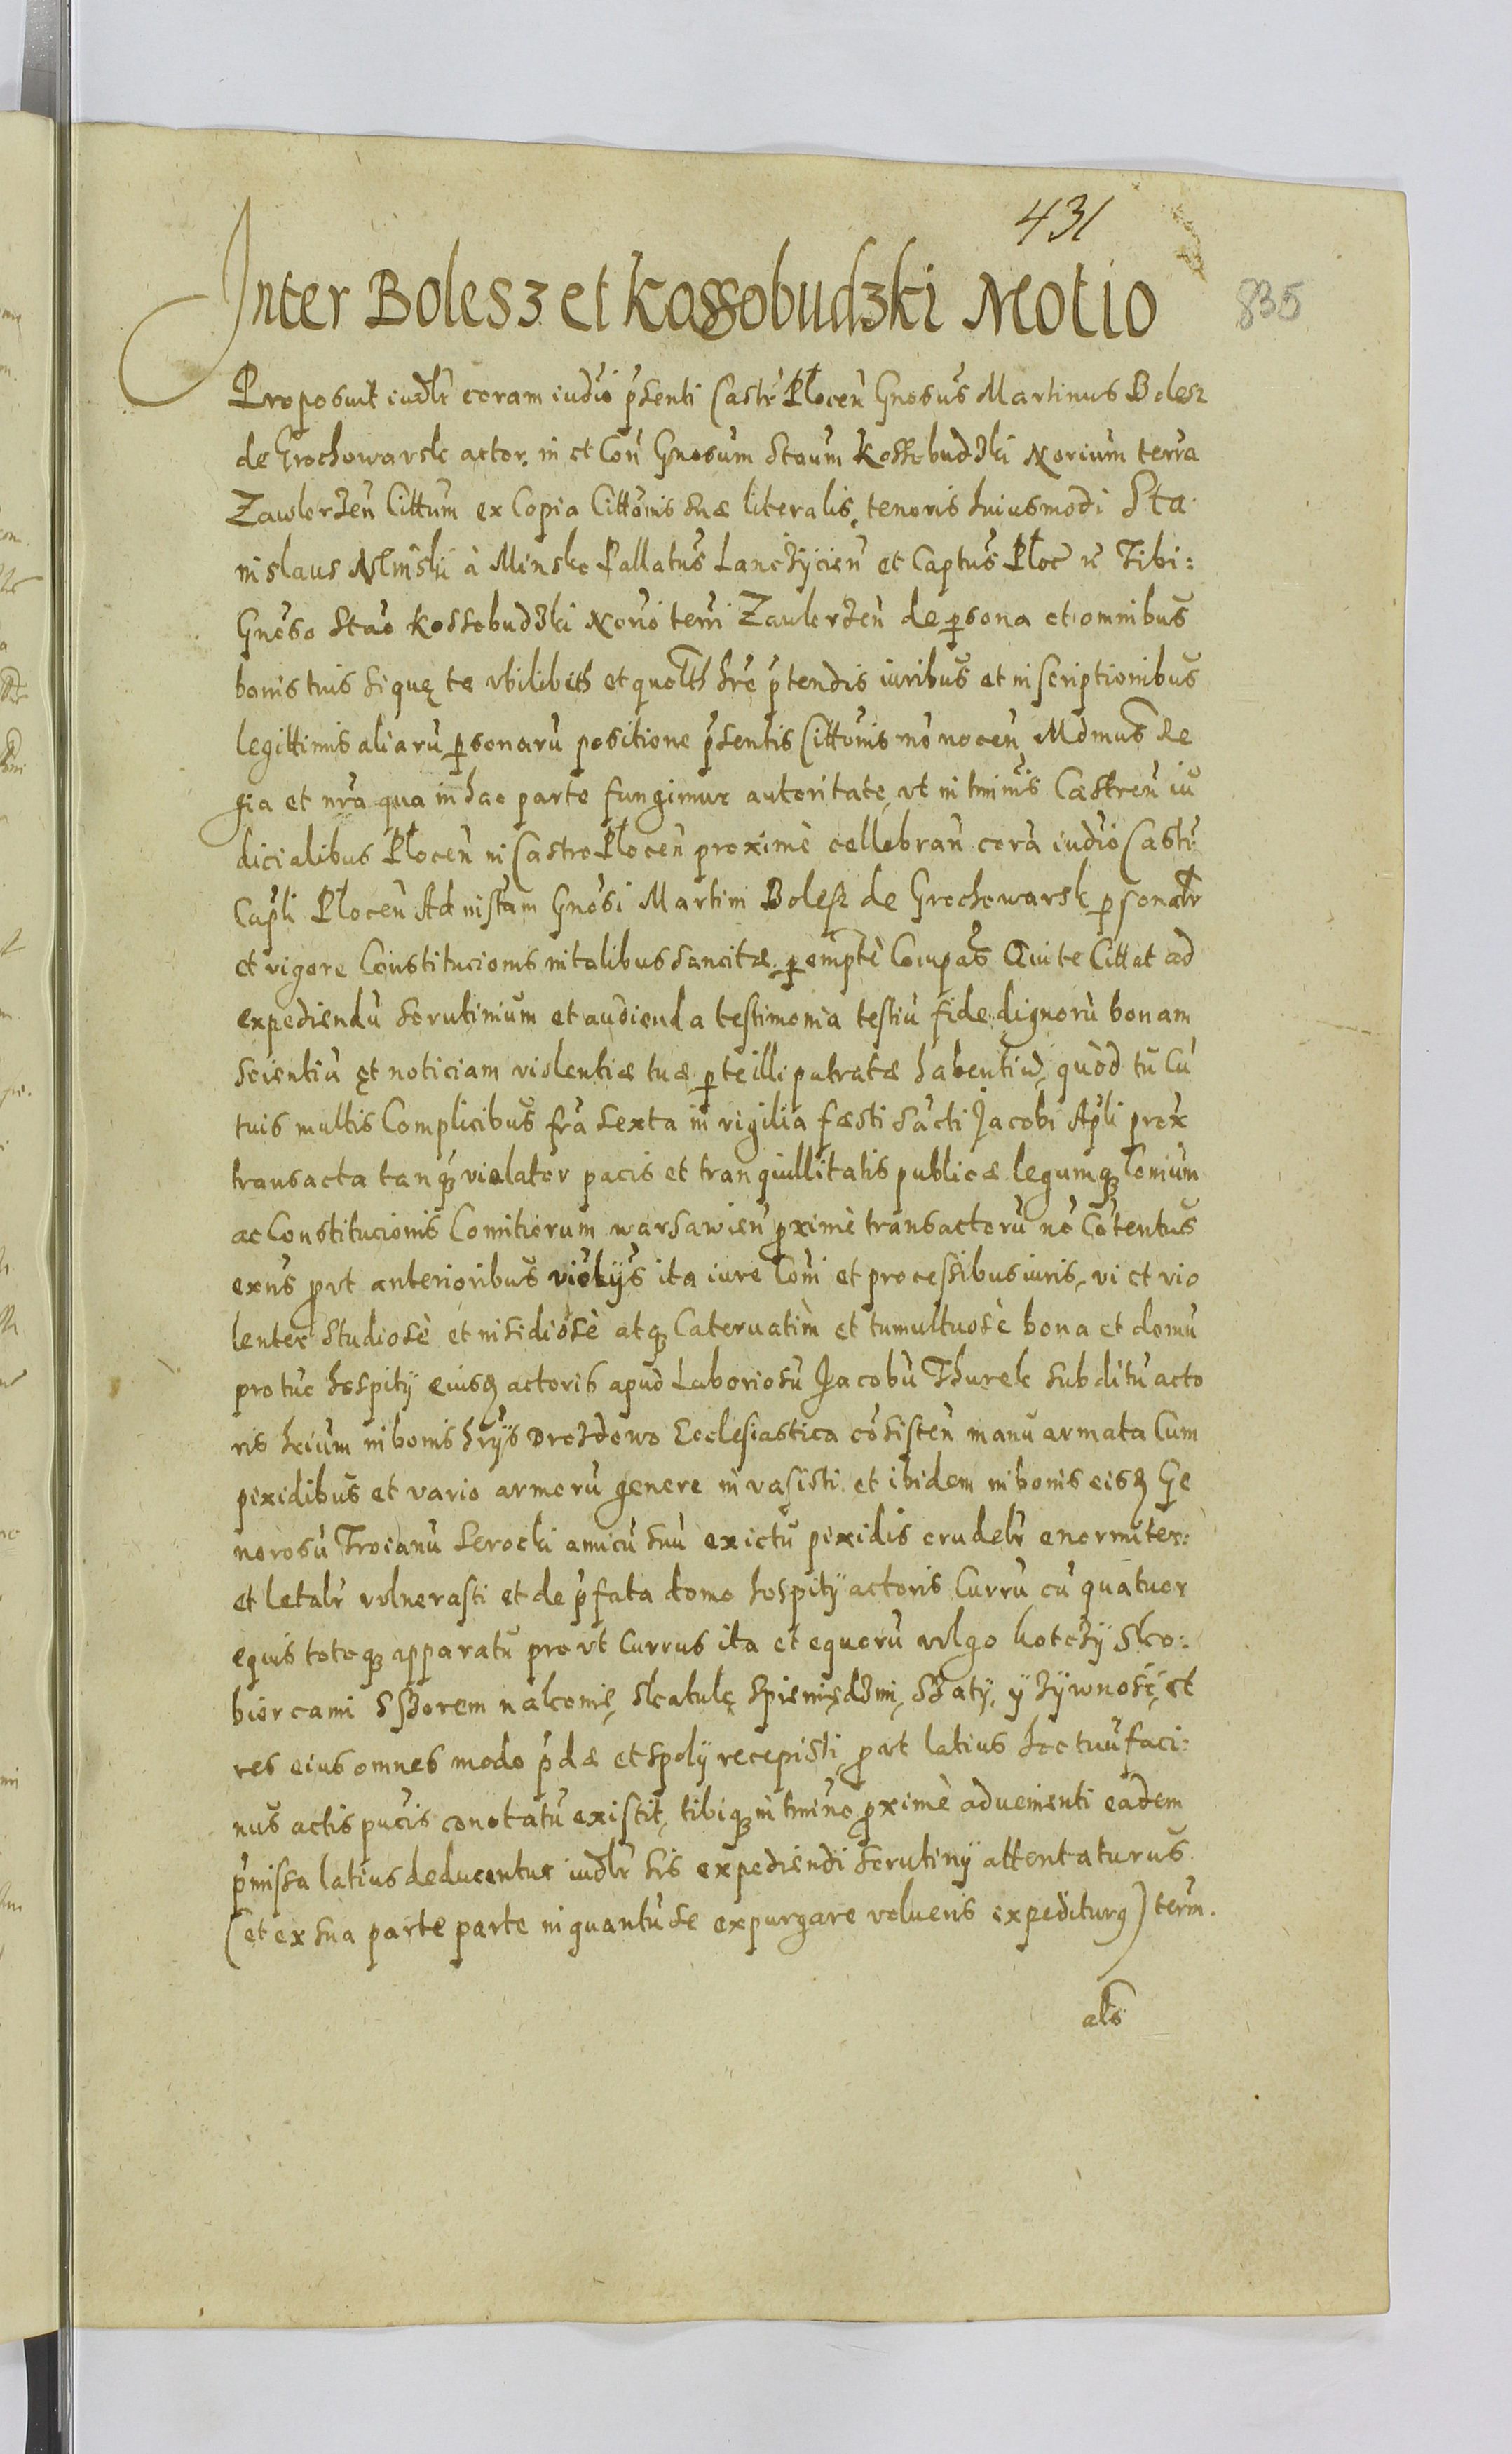 431
835
Inter Bolesz et Kossobudzki Motio
Proposuit iudlr coram iudio pnsenti Castr Plocen Gnosus Martinus Bolesz
de Grochowarsk actor in et Con Gnosum Staum Kossobudzki Norium terra
Zawkrzen Cittum ex Copia Cittonis suæ literalis, tenoris huiusmodi Sta
nislaus Minski à Minsko Pallatus Lanczÿcien et Captus Ploc n Tibi:
Gnoso Stao Kossobudzki Norio terri Zawkrzen de psona et omnibus
bonis tuis si quę te vbilibeth et quolth hre ptendis iuribus et in scriptionibus
legittimis aliarū psonarū positione psentis Cittonis no nocen Mdmus Re
gia et nra qua in hac parte fungimur autoritate, vt in tminis Castren iu
dicialibus Plocen in Castro Plocen proximè cellebran corā iudio Castr
Capli Plocen Ad instam Gnosi Martini Bolesz de Grochowarsk psonalr
et vigore Constitucionis in talibus sancitæ pempte Compas Qui te Cittat ad
expediendū scrutinium et audienda testimonia testiū fide dignorū bonam
scientiā et noticiam violentiæ tuæ p te illi patratæ habentiū, quòd tu Cū
tuis multis Complicibus fra sexta in vigilia fæsti sācti Jacobi Apli prox
transacta tanq violator pacis et tranquillitatis publicæ legumq Conium
ac Constitucionis Comitiorum warsawien pximè transactorū nō Cōtentus
exns put anterioribus violys ita iure Coni et processibus iuris, vi et vio
lenter studiosè et insidiosè atq Cateruatim et tumultuosè bona et domū
pro tūc hospitÿ eiusd actoris apud Laboriosū Jacobū Thurek subditū acto
ris in bonis hrÿs Drozdowo Ecclesiastica cōsisten manu armata Cum
pixidibus et vario armorū genere invasisti et ibidem in bonis eisd Ge
nerosū Troianū Serocki amicū suū ex ictu pixidis crudelr enormiter:
et letalr vulnerasti et de pfata domo hospitÿ actoris Currū cū quatuor
equis totoq apparatu pro vt Currus ita et equorū vulgo kotczÿ sko:
biercami sszorem nakonię, skatulę spieniędzmi, szatÿ, ÿ zÿwnosć, et
res eius omnes modo pdæ et spolÿ recepisti, put latius hoc tuū faci:
nus actis pucis conotatū existit, tibiq in tmino pximè aduenienti eadem
pmissa latius deducentur iudlr sis expediendi scrutinÿ attentaturus
(et ex sua parte parte in quantū se expurgare volueris expediturq) term.
als